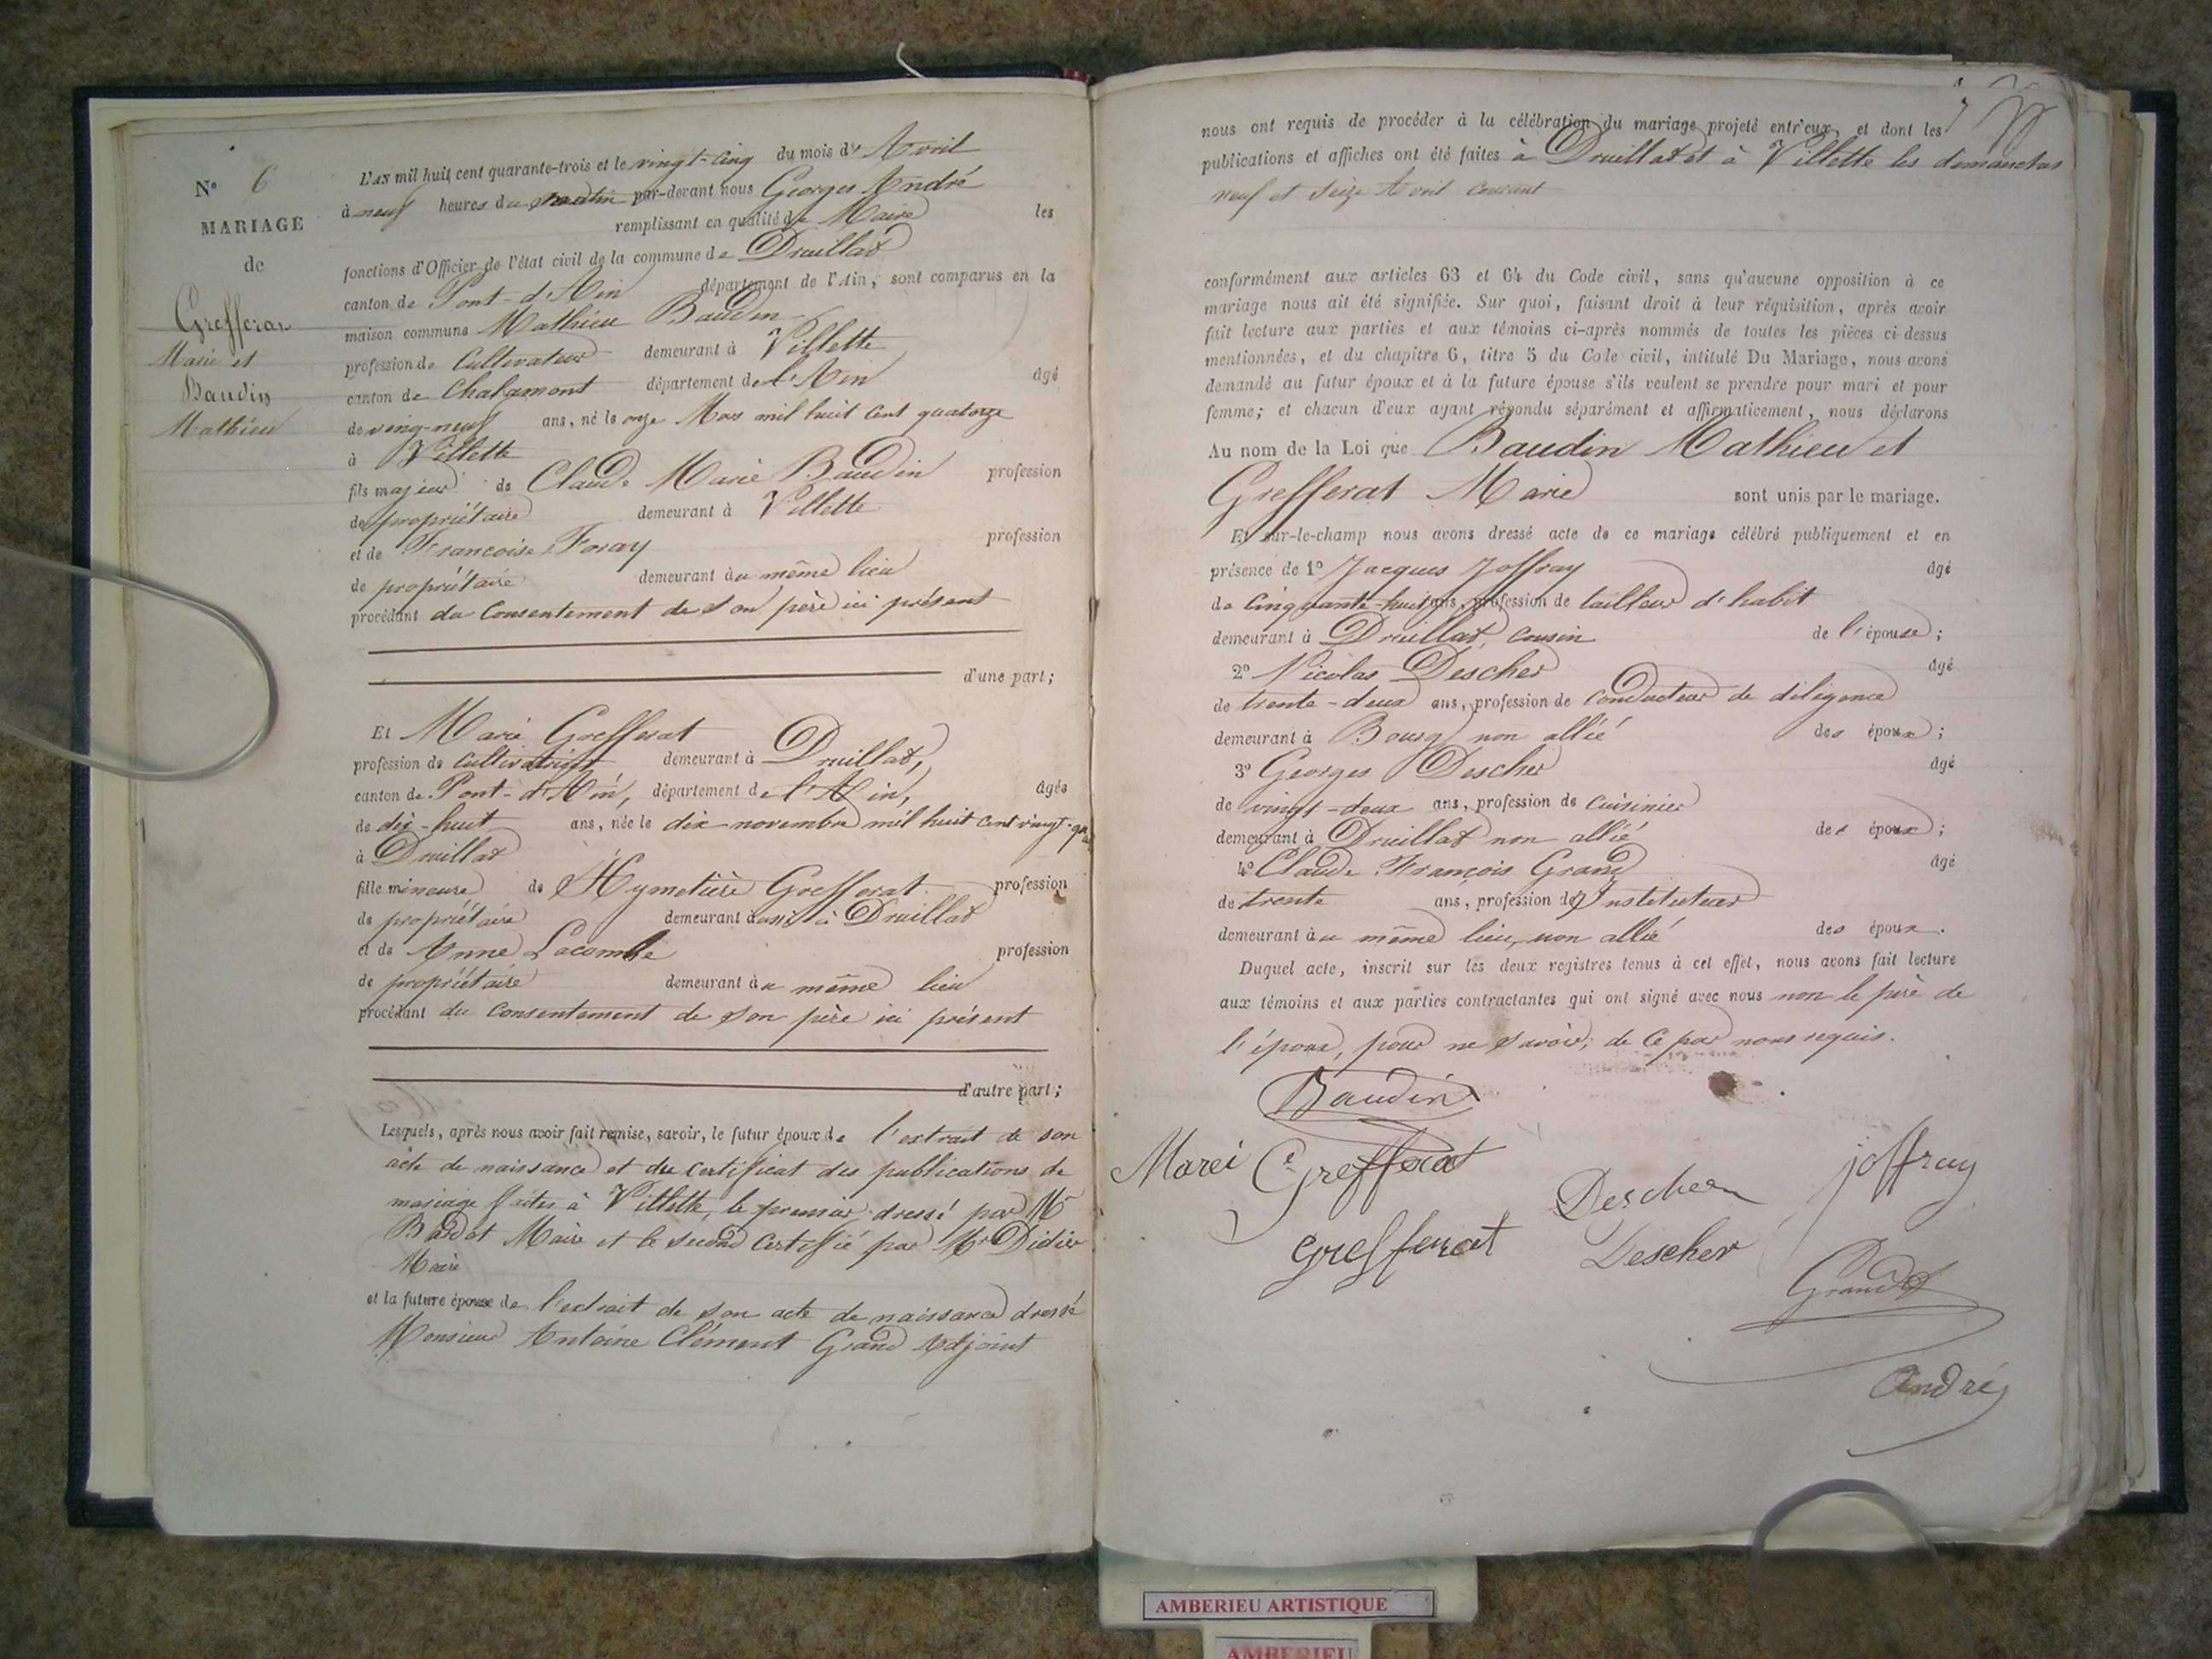 N° 6
MARIAGE
de
Grefferat
Marie et
Baudin
Mathieu
L'AN mil huit cent quarante-trois et le vingt-cinq du mois d'Avril
à neuf heures du matin par-devant nous Georges André
remplissant en qualité de Maire les
fonctions d'Officier de l'état civil de la commune de Druillat
canton de Pont-d'Ain département de l'Ain, sont comparus en la
maison commune Mathieu Baudin
profession de Cultivateur demeurant à Villette
canton de Chalamont département de l'Ain âgé
de ving-neuf ans, né le onze Mars mil huit cent quatorze
à Villette
fils majeur de Claude Marie Baudin profession
de propriétaire demeurant à Villette
et de Francoise Foray profession
de propriétaire demeurant au même lieu
procédant du Consentement de son père ici présent
d'une part;
Et Marie Grefferat
profession de Cultivatrice demeurant à Druillat,
canton de Pont-d'Ain, département de l'Ain, âgée
de dix-huit ans, née le dix novembre mil huit cent vingt-qua
à Druillat
fille mineure de Hymetière Grefferat profession
de propriétaire demeurant aussi à Druillat
et de Anne Lacombe profession
de propriétaire demeurant au même lieu
procédant du Consentement de son père ici présent
d'autre part;
Lesquels, après nous avoir fait remise, savoir, le futur époux de l'extrait de son
acte de naissance et du certificat des publications de
mariage faites à Villette, le premier dressé par Mr
Bardot Maire et le second Certifié par Mr Didier
Maire
et la future épouse de l'extrait de son acte de naissance dressé
Monsieur Antoine Clément Grand Adjoint
nous ont requis de procéder à la célébration du mariage projeté entr'eux, et dont les
publications et affiches ont été faites à Druillat et à Villette les dimanches
neuf et seize Avril courant
conformément aux articles 63 et 64 du Code civil, sans qu'aucune opposition à ce
mariage nous ait été signifiée. Sur quoi, faisant droit à leur réquisition, après avoir
fait lecture aux parties et aux témoins ci-après nommés de toutes les pièces ci-dessus
mentionnées, et du chapitre 6, titre 5 du Code civil, intitulé Du Mariage, nous avons
demandé au futur époux et à la future épouse s'ils veulent se prendre pour mari et pour
femme; et chacun d'eux ayant répondu séparément et affirmativement, nous déclarons
Au nom de la Loi que Baudin Mathieu et
Grefferat Marie sont unis par le mariage.
Et sur-le-champ nous avons dressé acte de ce mariage célébré publiquement et en
présence de 1° Jacques Joffray âgé
de Cinquante-huit ans, profession de tailleur d'habit
demeurant à Druillat, cousin de l'épouse;
2° Nicolas Descher âgé
de trente-deux ans, profession de Conducteur de diligence
demeurant à Bourg non allié des époux;
3° Georges Descher âgé
de vingt-deux ans, profession de cuisinier
demeurant à Druillat non allié des époux;
4° Claude François Grand âgé
de trente ans, profession d'Instituteur
demeurant au même lieu, non allié des époux.
Duquel acte, inscrit sur les deux registres tenus à cet effet, nous avons fait lecture
aux témoins et aux parties contractantes qui ont signé avec nous non le père de
l'époux, pour ne savoir, de ce par nous requis.
Baudin
Marei Grefferat
Descher
joffray
grefferat
Descher
Grand
André
AMBERIEU ARTISTIQUE
AMBERIEU